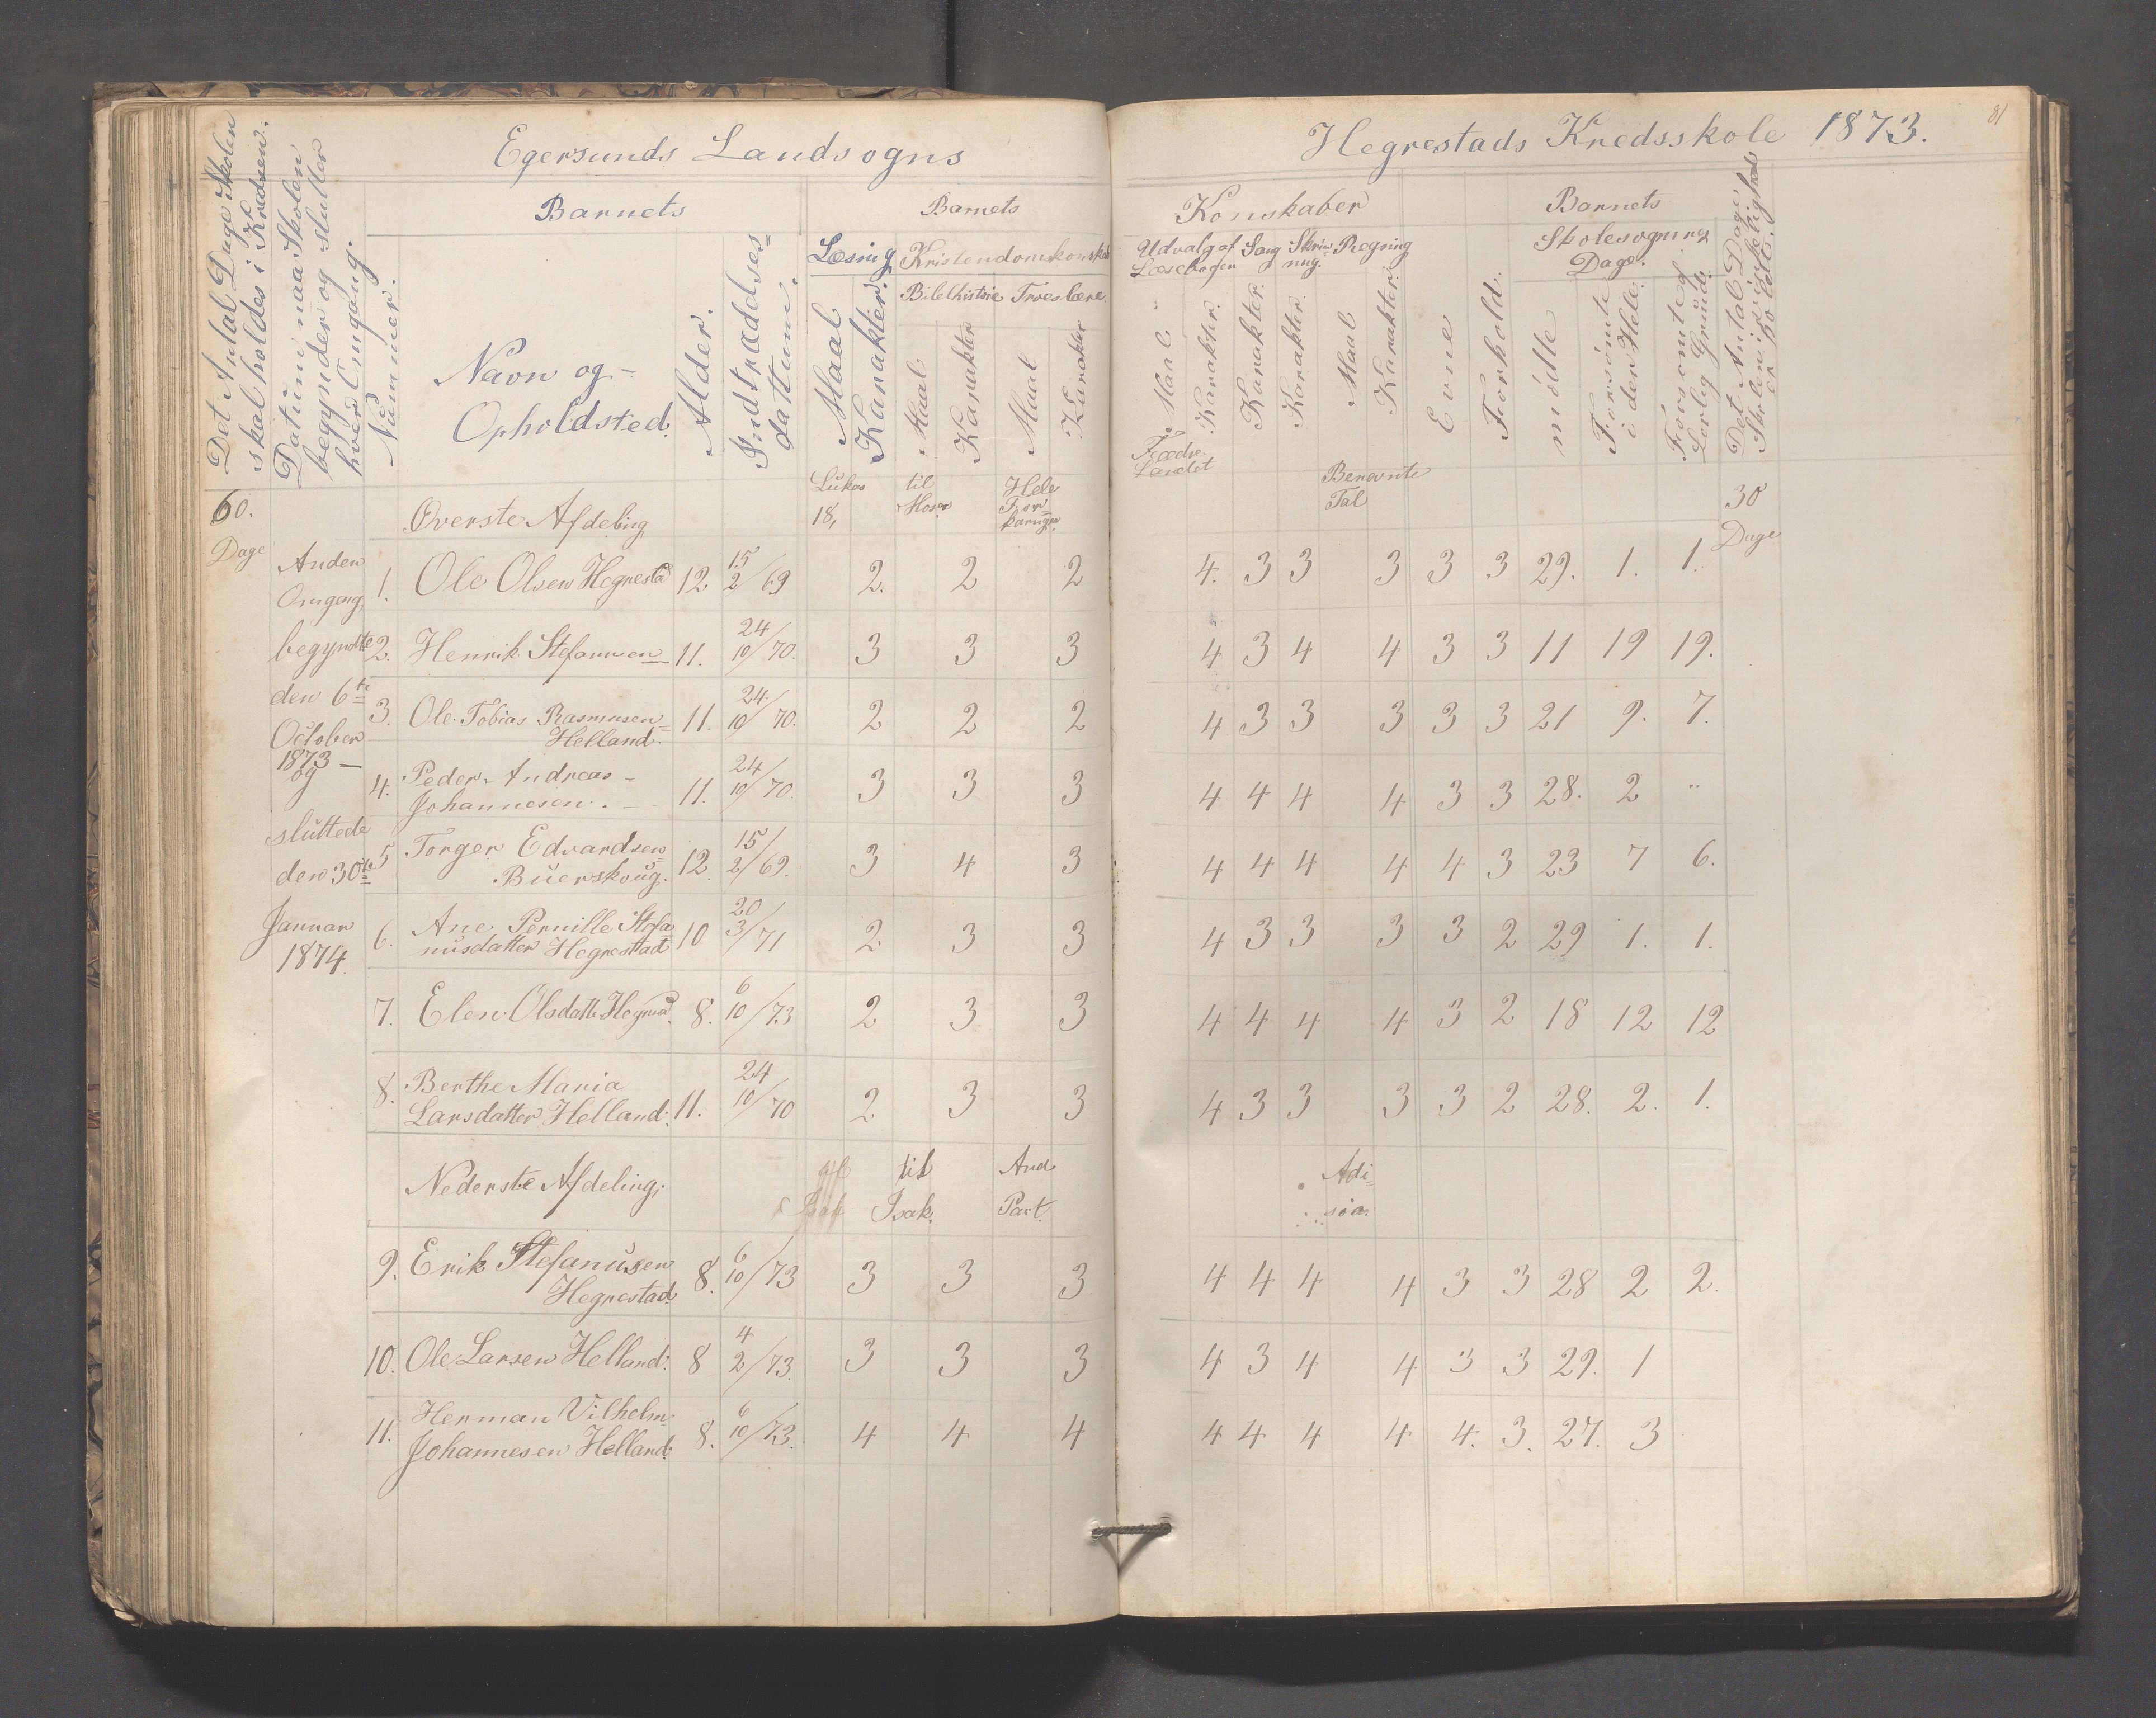 Egersunds Landsogns
Hegrestads Kredsskole 1873.
81
Det Antal Dage Skolen
skal holdes i Kredsen.
Datum naa Skolen
begynder og slutter
hver Omgang.
Nummer.
Barnets
Navn og
Opholdsted.
Alder.
Indtrædelses=
dattum.
Barnets
Læsing
Maal
Karakter.
Kristendomskonskab
Bibelhistorie Troeslære
Maal
Karakter
Maal
Karakter
Konskaber
Udvalg af Læsebogen
Maal.
Karakter.
Sang
Karakter.
Skrivning.
Karakter.
Regning
Maal
Karakter.
Evne
Forhold.
Barnets
Skolesogning
Dage.
mödte
Forsömte
i det Hele.
Forsömte af
Lovlig Grund.
Det Antal Dage
Skolen i virkeligheden
er holdt.
60.
Dage
Overste Afdeling
Lukas 18,
til Mose
Hele Forklaringen
Fædrelandet
Benævnte Tal
30
Dage
Anden
Omgang
begyndte
den 6te
October
1873 —
og
sluttede
den 30te
Januar
1874.
1. Ole Olsen Hegrestad 12 15/2/69 2. 2 2 4. 3 3 3 3 3 29. 1. 1.
2. Henrik Stefanusen 11. 24/10/70. 3 3 3 4 3 4 4 3 3 11 19 19.
3. Ole Tobias Rasmusen=
Helland. 11. 24/10/70. 2 2 2 4 3 3 3 3 3 21 9. 7.
4. Peder Andreas
Johannesen. 11. 24/10/70. 3 3 3 4 4 4 4 3 3 28. 2 "
5 Torger Edvardsen=
Buerskoug. 12. 15/2/69. 3 4 3 4 4 4 4 4 3 23 7 6.
6. Ane Pernille Stefa=
nusdatter Hegrestad 10 20/3/71 2. 3 3 4 3 3 3 3 2 29 1. 1.
7. Elen Olsdatter Hegrestad. 8. 6/10/73 2 3 3 4 4 4 4 3 2 18 12 12
8. Berthe Maria
Larsdatter Helland. 11. 24/10/70 2 3 3 4 3 3 3 3 2 28. 2. 1.
Nederste Afdeling;
af Isak
til Isak.
And Part.
Adi=
sion
9. Erik Stefanusen
Hegrestad. 8. 6/10/73 3 3 3 4 4 4 4 3 3 28 2 2.
10. Ole Larsen Helland. 8 4/2/73. 3 3 3 4 3 4 4 3 3 29. 1
11. Herman Vilhelm
Johannesen Helland. 8. 6/10/73. 4 4 4 4 4 4 4 4. 3. 27. 3